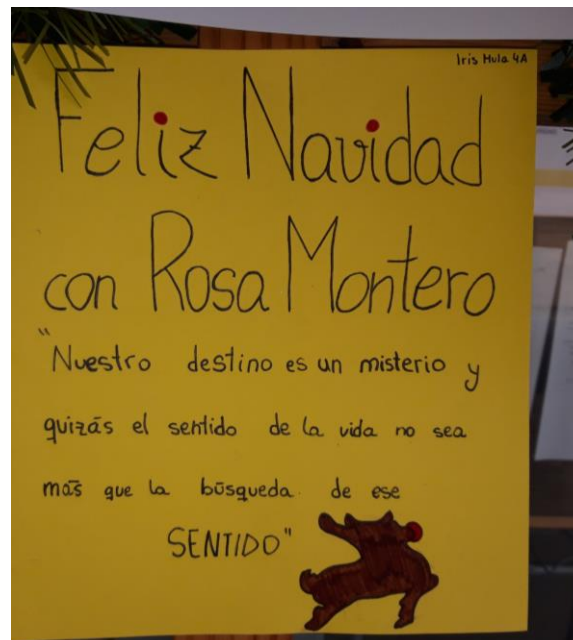 Iris Mula 4A
Feliz Navidad
con Rosa Montero
"Nuestro destino es un misterio y
quizás el sentido de la vida no sea
más que la búsqueda de ese
SENTIDO"